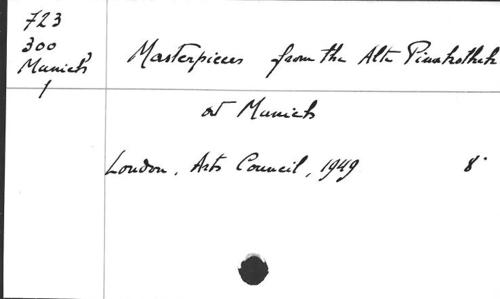 723
300
Munich
1
Masterpieces from the Alte Pinakothek
at Munich
London, Arts Council, 1949 8°